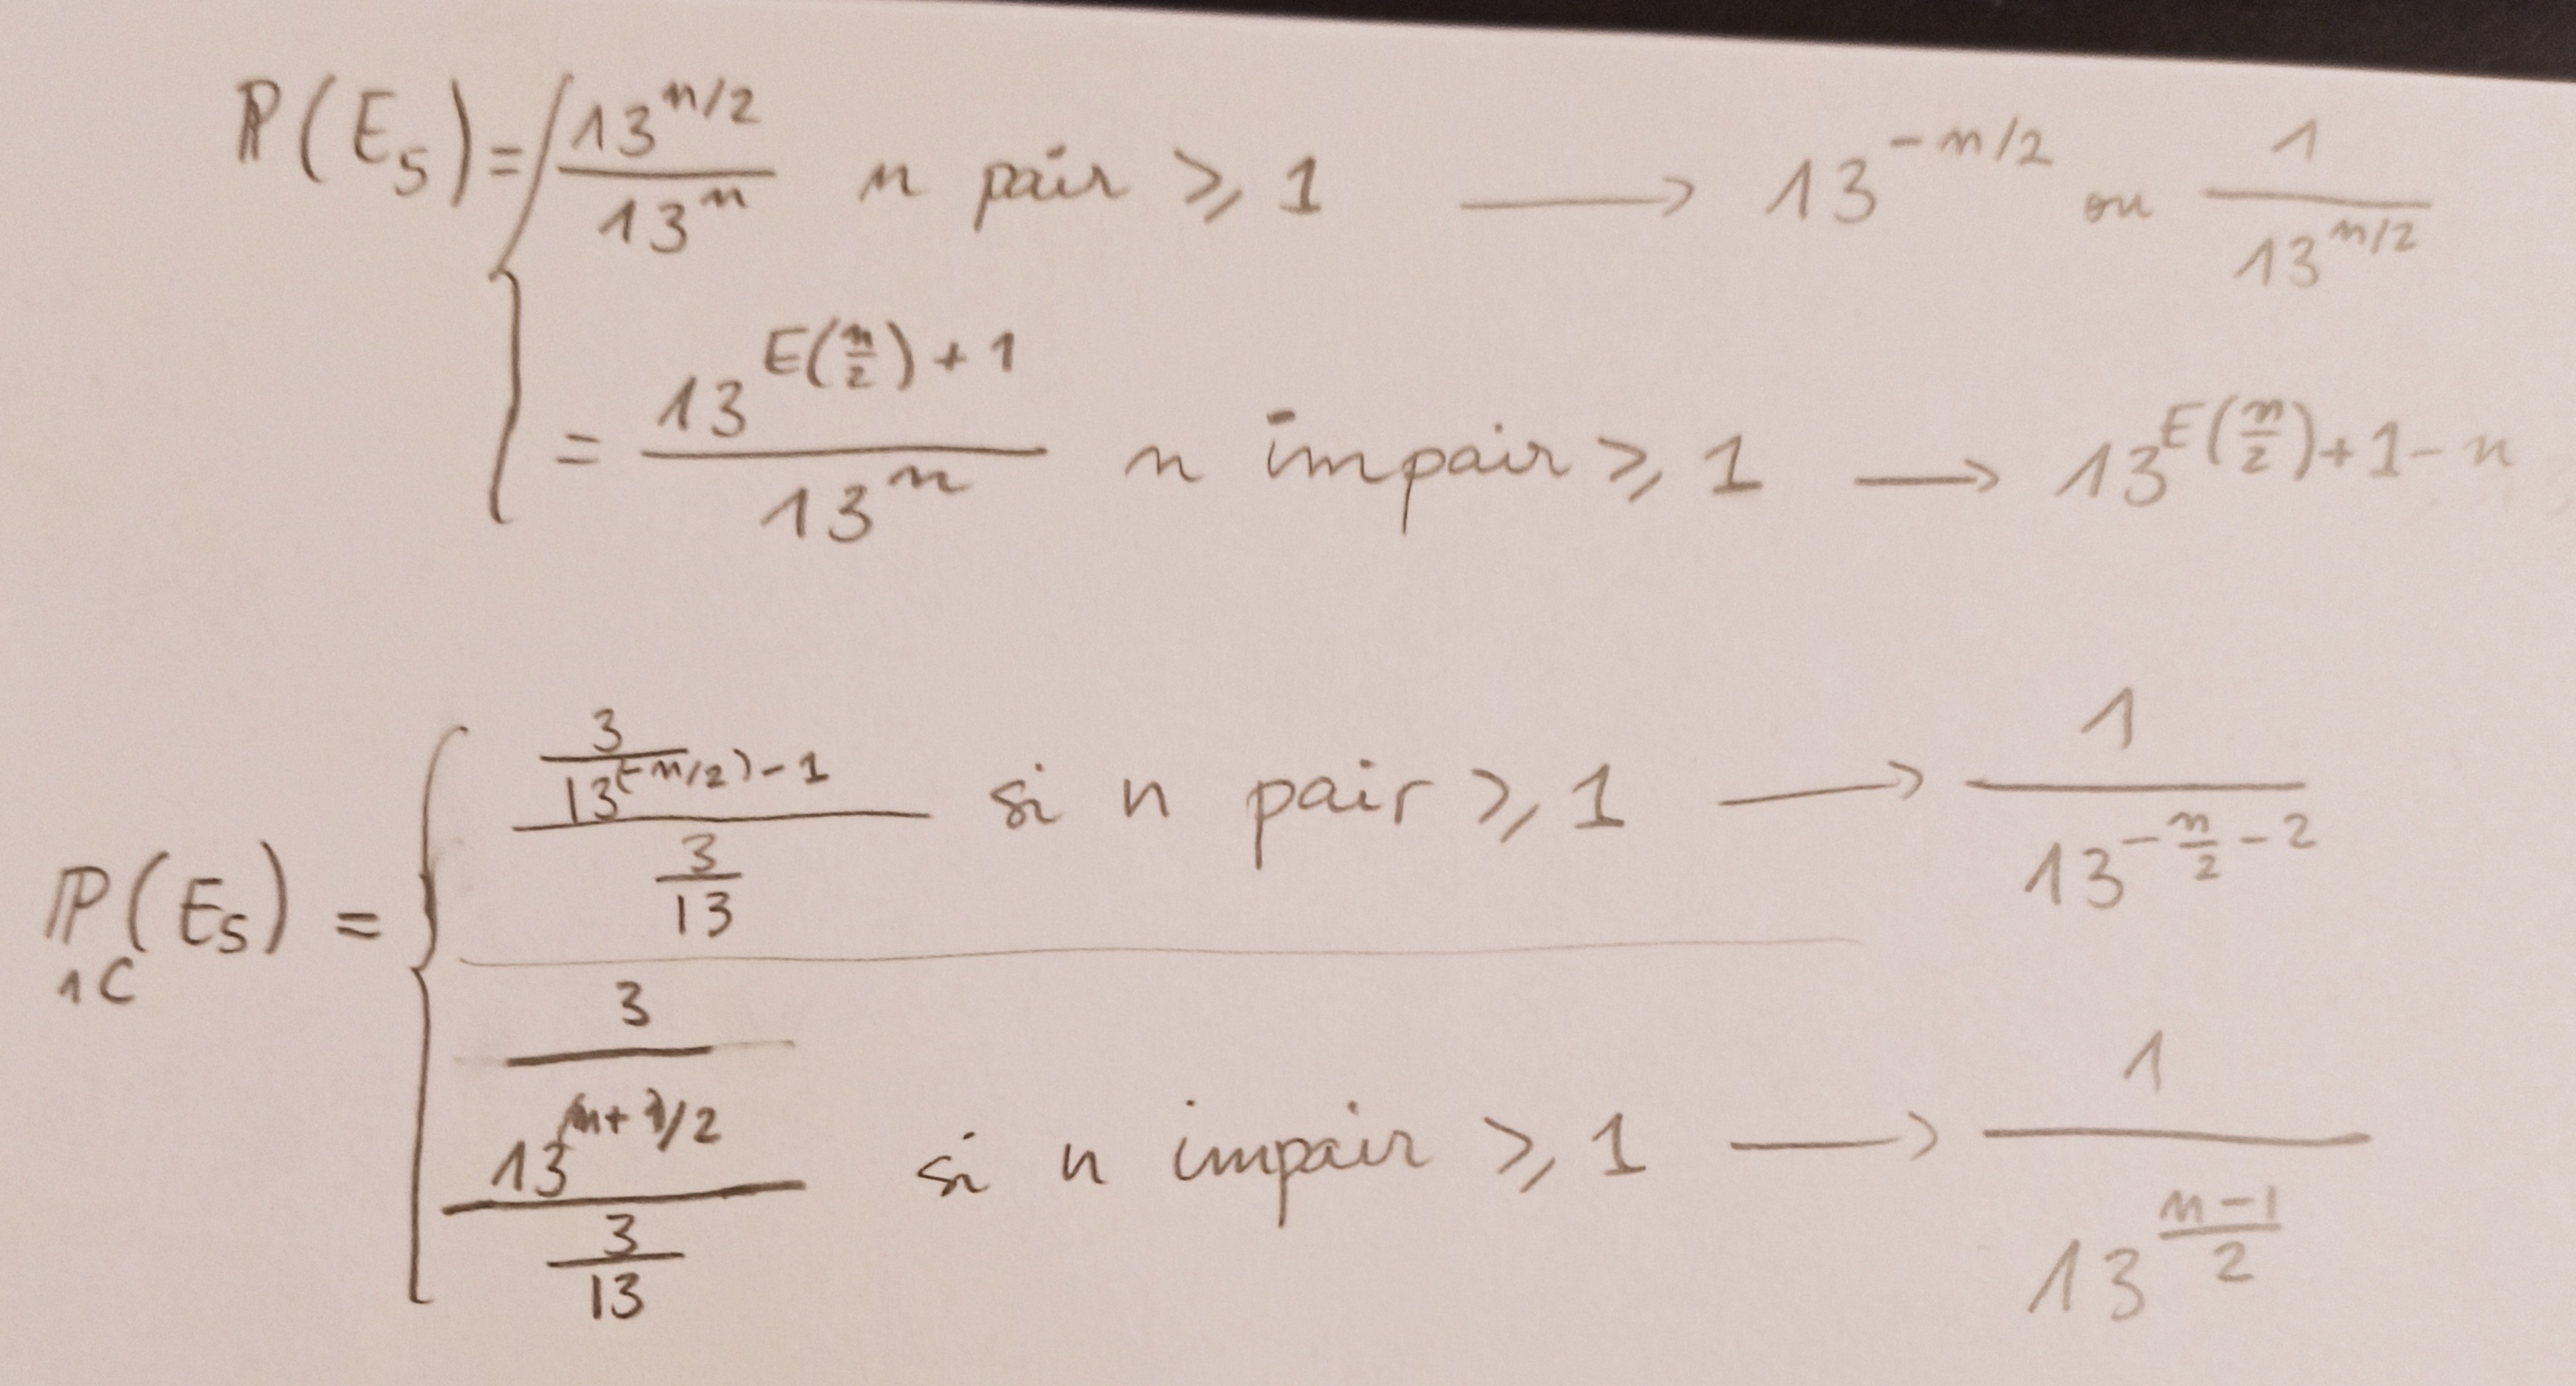 ℙ(E₅) = { 13^{n/2} / 13^n n pair ⩾ 1 ⟶ 13^{-n/2} ou 1 / 13^{n/2}
= 13^{E(n/2)+1} / 13^n n impair ⩾ 1 ⟶ 13^{E(n/2)+1-n}
ℙ_{1C}(E₅) = { (3 / 13^{(-n/2)-1}) / (3/13) si n pair ⩾ 1 ⟶ 1 / 13^{-n/2-2}
(3 / 13^{(n+1)/2}) / (3/13) si n impair ⩾ 1 ⟶ 1 / 13^{(n-1)/2}